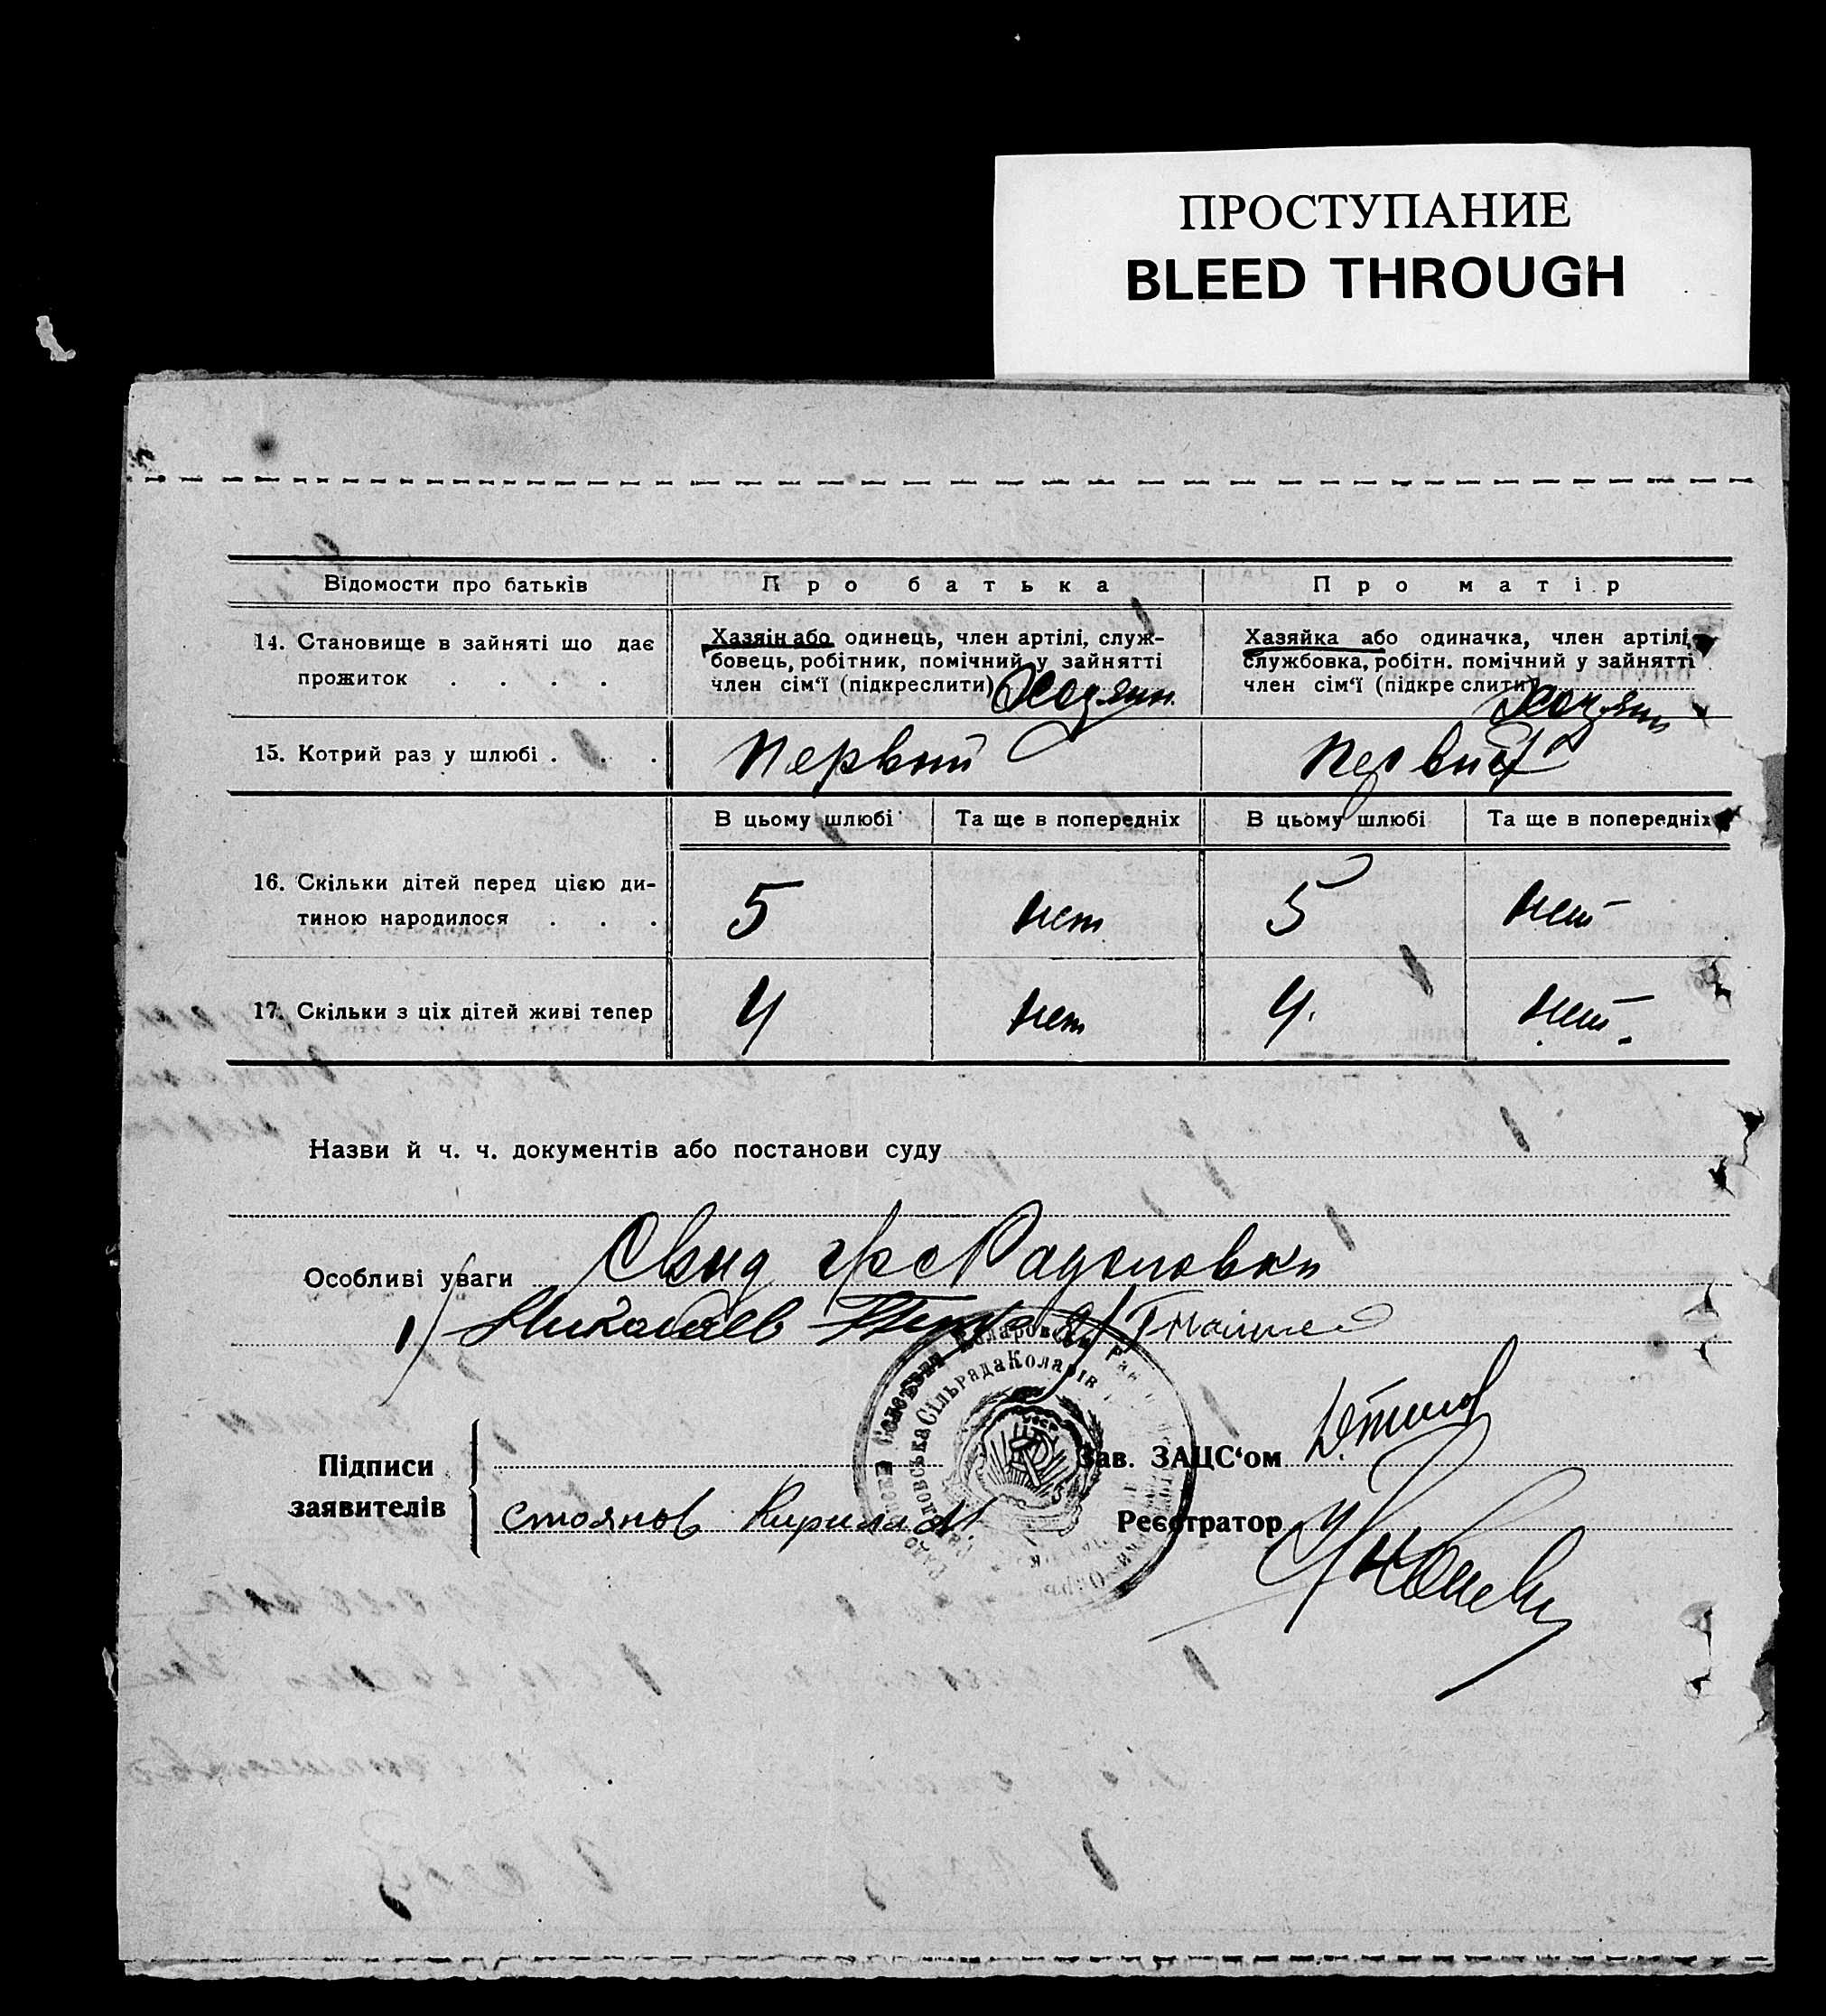 ПРОСТУПАНИЕ
BLEED THROUGH
Відомости про батьків
Про батька
Про матір
14. Становище в зайняті що дає
прожиток . . . .
Хазяїн або одинець, член артілі, служ-
бовець, робітник, помічний у зайнятті
член сім‘ї (підкреслити) Хозяин
Хазяйка або одиначка, член артілі,
службовка, робітн. помічний у зайнятті
член сім‘ї (підкреслити)
Хозяин
15. Котрий раз у шлюбі . . .
Первий
Первий
В цьому шлюбі
Та ще в попередніх
В цьому шлюбі
Та ще в попередніх
16. Скільки дітей перед цією ди-
тиною народилося . . .
5
нет
5
нет
17. Скільки з ціх дітей живі тепер
4
нет
4.
нет.
Назви й ч. ч. документів або постанови суду
Особливі уваги Свид гр с Радоловки
1) Николаев
Підписи
заявителів
Стоянов Кирила
Зав. ЗАЦС‘ом
Реєстратор